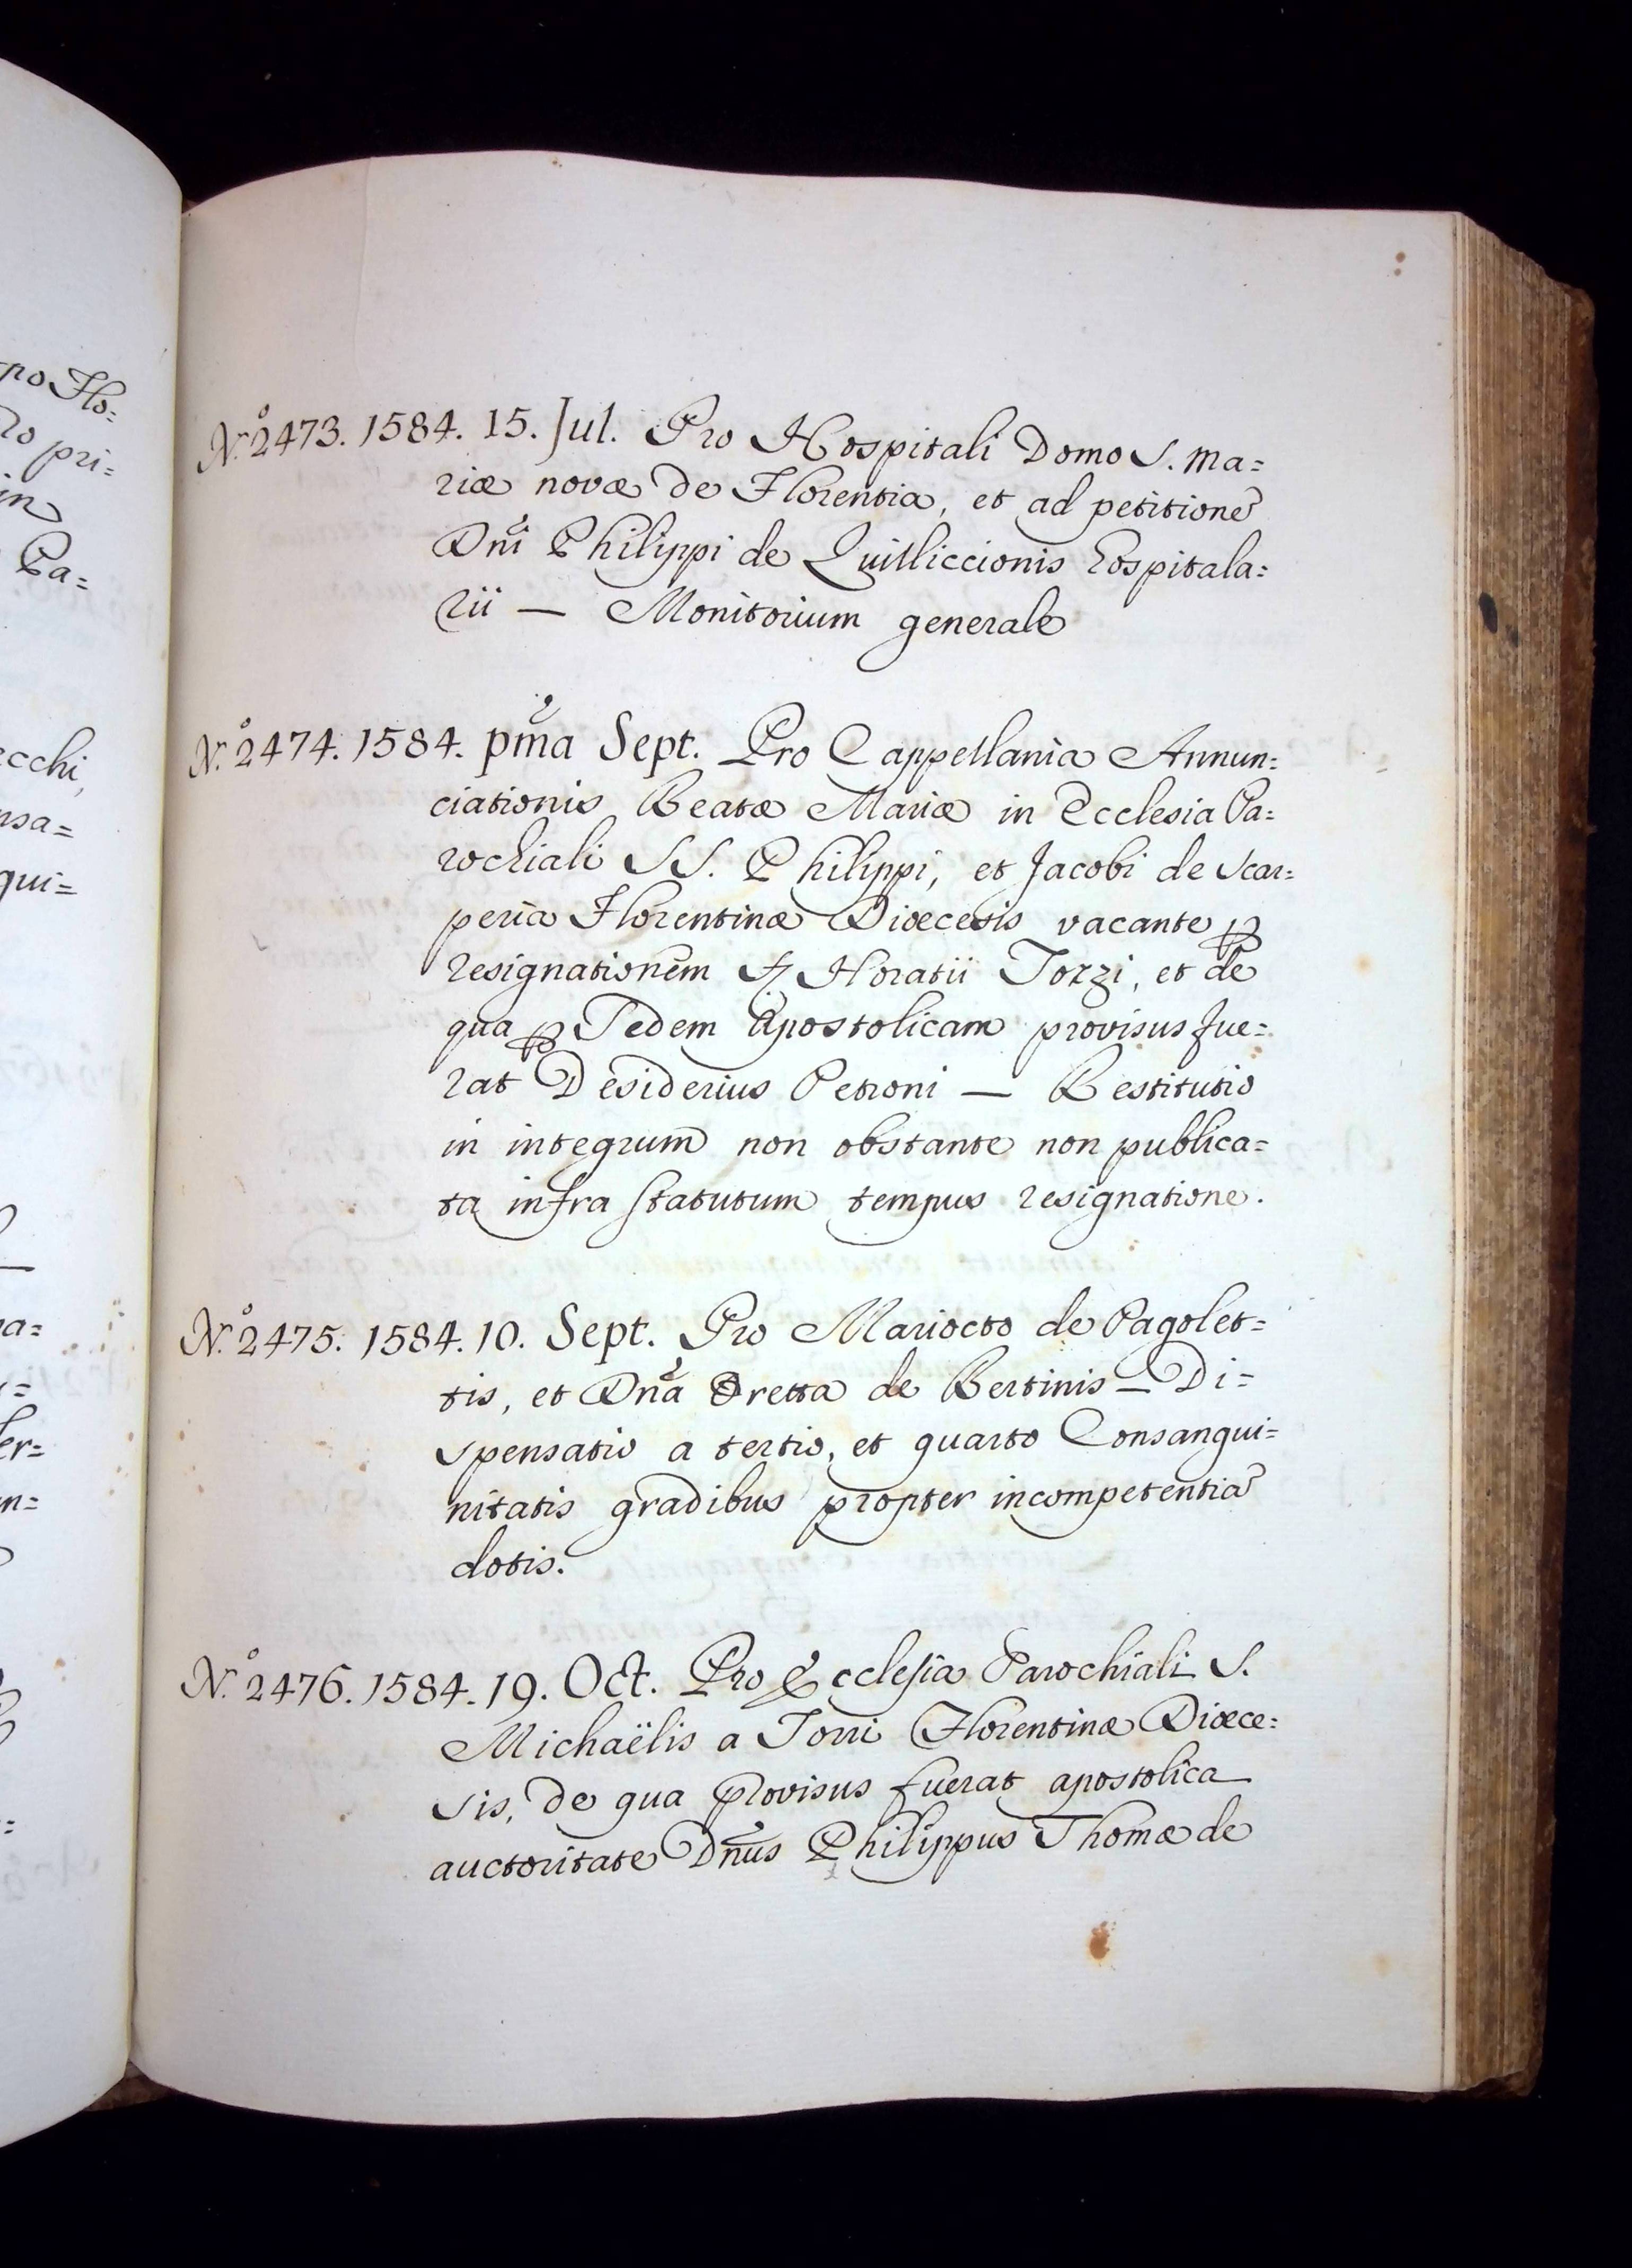 po Flo:
do pri=
in
Pa=
ecchi,
nsa=
qui=
a=
er=
n=
N.º 2473. 1584. 15. Jul. Pro Hospitali Domo S. Ma=
riæ novæ de Florentia, et ad petitionẽ
Dñi Philippi de Quilliccionis Hospitala=
rii — Monitorium generale
N.º 2474. 1584. pm̃a Sept. Pro Cappellania Annun=
ciationis Beatæ Mariæ in Ecclesia Pa=
rochiali SS. Philippi, et Jacobi de Scar=
peria Florentinæ Dioecesis vacante ꝑ
resignationem q. Horatii Tozzi, et de
qua ꝑ Sedem Apostolicam provisus fue=
rat Desiderius Petroni — Restitutio
in integrum non obstante non publica=
ta infra statutum tempus resignatione.
N.º 2475. 1584. 10. Sept. Pro Mariocto de Pagolet=
tis, et Dña Oretta de Bertinis — Di=
spensatio a tertio, et quarto Consangui=
nitatis gradibus propter incompetentiã
dotis.
N.º 2476. 1584. 19. Oct. Pro Ecclesia Parochiali S.
Michaëlis a Torri Florentinæ Dioece=
sis, de qua provisus fuerat apostolica
auctoritate Dñus Philippus Thomæ de